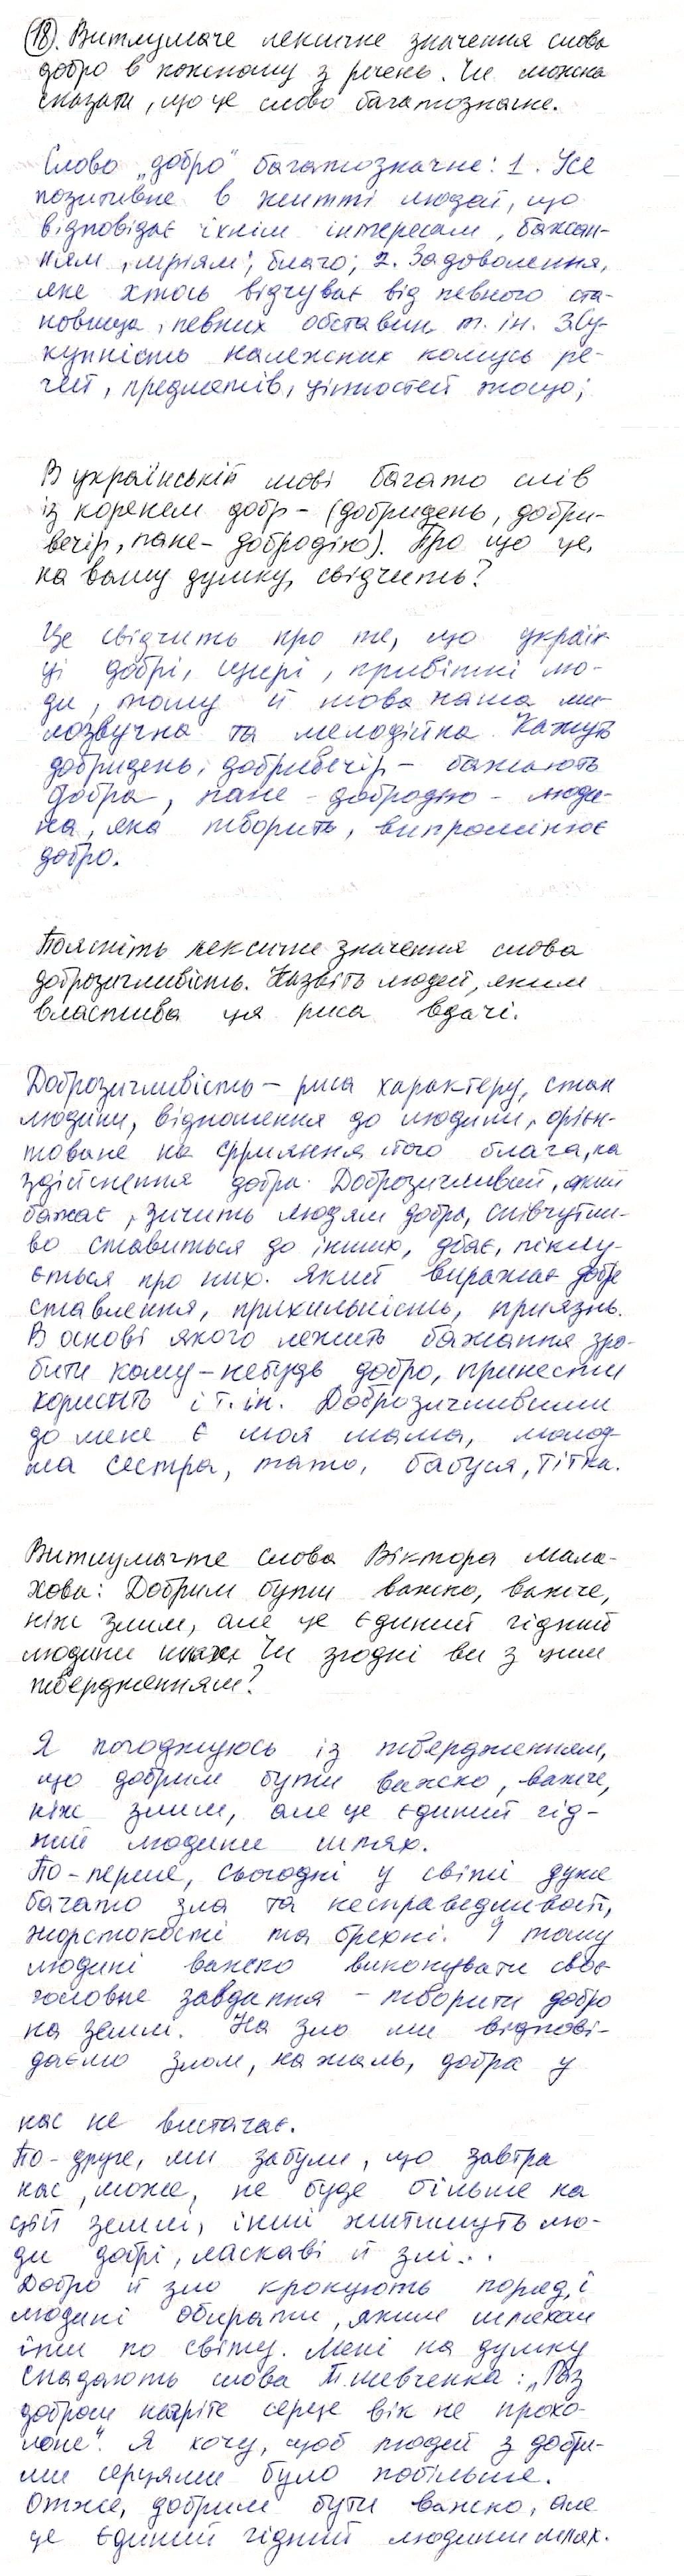 (18). Витлумаче лексичне значення слова
добро в кожному з речень. Чи можна
сказати, що це слово багатозначне.
Слово „добро" багатозначне: 1. Усе
позитивне в житті людей, що
відповідає їхнім інтересам, бажан-
ням, мріям; благо; 2. Задоволення,
яке хтось відчуває від певного ста-
новища, певних обставин т. ін. 3. Су-
купність належних комусь ре-
чей, предметів, цінностей тощо;
В українській мові багато слів
із коренем добр- (добридень, добри-
вечір, пане-добродію). Про що це,
на вашу думку, свідчить?
Це свідчить про те, що україн-
ці добрі, щирі, привітні лю-
ди, тому й мова наша ми-
лозвучна та мелодійна. Кажуть
добридень, добривечір - бажають
добра, пане - добродію - люди-
на, яка творить, випромінює
добро.
Поясніть лексичне значення слова
доброзичливість. Назвіть людей, яким
властива ця риса вдачі.
Доброзичливість - риса характеру, стан
людини, відношення до людини, орієн-
товане на сприяння його блага, на
здійснення добра. Доброзичливий, який
бажає, зичить людям добра, співчутли-
во ставиться до інших, дбає, піклу-
ється про них. Який виражає добре
ставлення, прихильність, приязнь.
В основі якого лежить бажання зро-
бити кому-небудь добро, принести
користь і т. ін. Доброзичливими
до мене є моя мама, молод-
ша сестра, тато, бабуся, тітка.
Витлумачте слова Віктора Мала-
хова: Добрим бути важко, важче,
ніж злим, але це єдиний гідний
людини шлях. Чи згодні ви з цим
твердженням?
Я погоджуюсь із твердженням,
що добрим бути важко, важче,
ніж злим, але це єдиний гід-
ний людини шлях.
По-перше, сьогодні у світі дуже
багато зла та несправедливості,
жорстокості та брехні. І тому
людині важко виконувати своє
головне завдання - творити добро
на землі. На зло ми відпові-
даємо злом, на жаль, добра у
нас не вистачає.
По-друге, ми забули, що завтра
нас, може, не буде більше на
цій землі, інші житимуть лю-
ди добрі, ласкаві й злі...
Добро й зло крокують поряд, і
людині обирати, яким шляхом
іти по світу. Мені на думку
спадають слова Т. Шевченка: „Раз
добром нагріте серце вік не прохо-
лоне". Я хочу, щоб людей з добри-
ми серцями було побільше.
Отже, добрим бути важко, але
це єдиний гідний людини шлях.